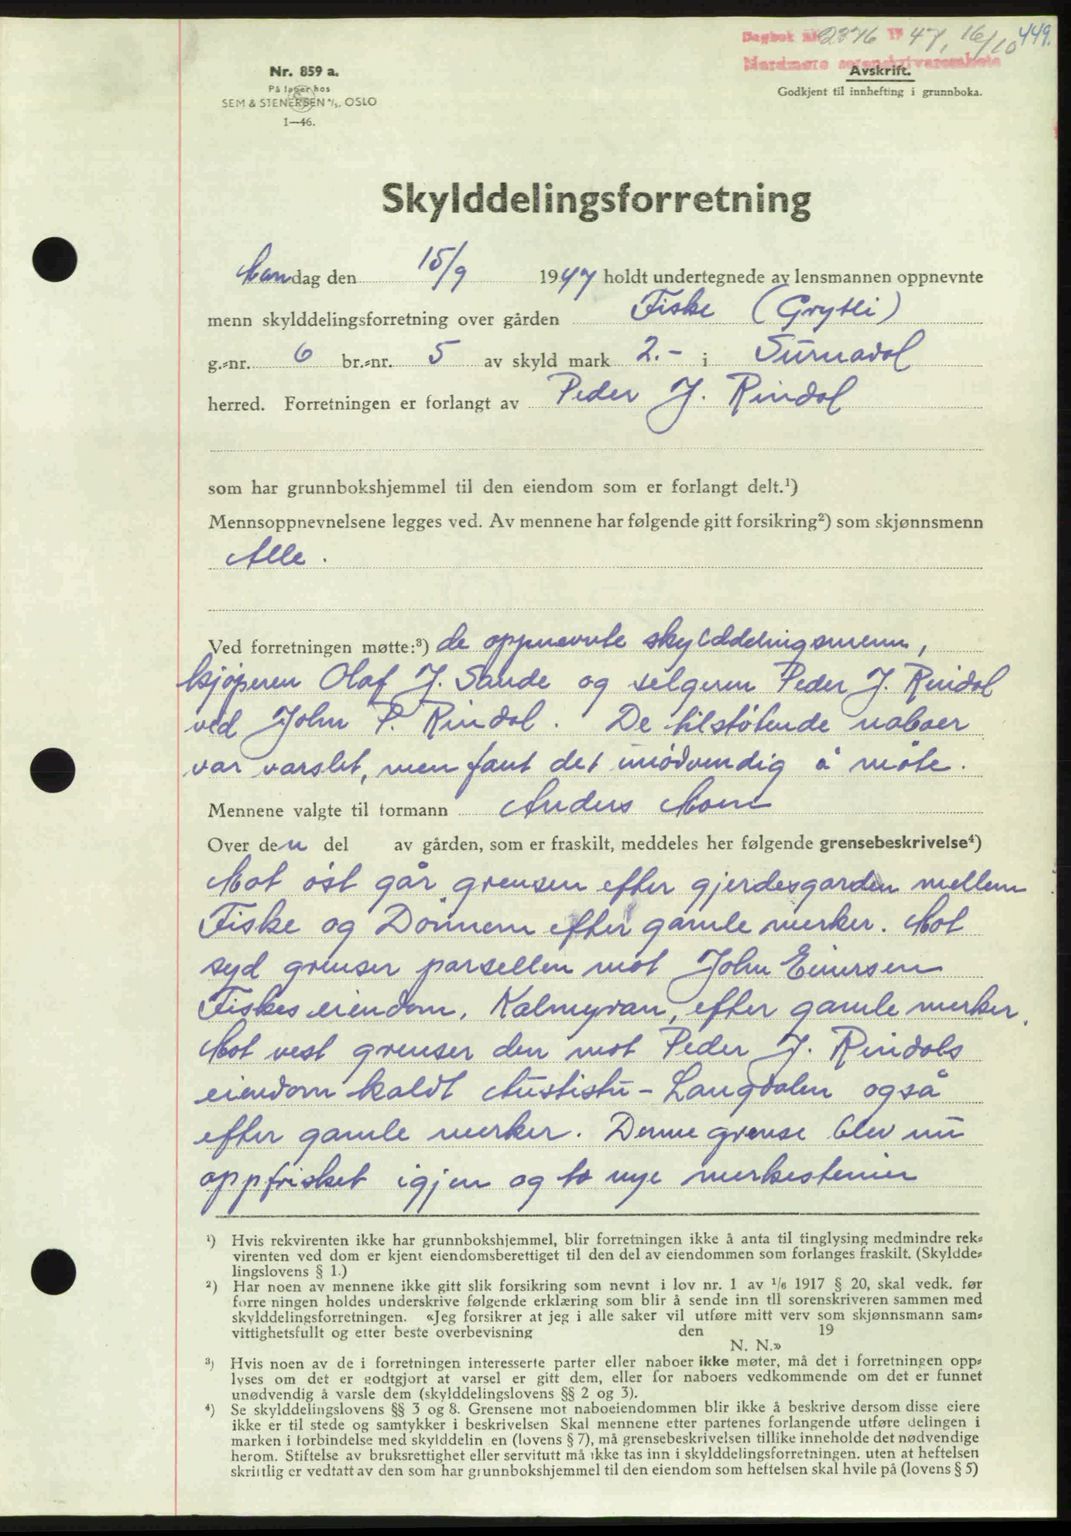 Dagbok nr. 2376 19 47, 16/10 449.
Nordmøre sorenskriverembete
Nr. 859 a.
Avskrift.
På lager hos
Godkjent til innhefting i grunnboka.
SEM & STENERSEN A/S, OSLO
1—46.
Skylddelingsforretning
Mandag den 15/9 1947 holdt undertegnede av lensmannen oppnevnte
menn skylddelingsforretning over gården Fiske (Grytli)
g.-nr. 6 br.-nr. 5 av skyld mark 2.- i Surnadal
herred. Forretningen er forlangt av Peder J. Rindal
som har grunnbokshjemmel til den eiendom som er forlangt delt.¹)
Mennsoppnevnelsene legges ved. Av mennene har følgende gitt forsikring²) som skjønnsmenn
Alle.
Ved forretningen møtte:³) de oppnevnte skylddelingsmenn,
kjøperen Olaf J. Sande og selgeren Peder J. Rindal
ved John P. Rindal. De tilstøtende naboer
var varslet, men fant det unødvendig å møte.
Mennene valgte til formann Anders Moen
Over den del av gården, som er fraskilt, meddeles her følgende grensebeskrivelse⁴)
Mot øst går grensen efter gjerdesgarden mellem
Fiske og Dønnem efter gamle merker. Mot
syd grenser parsellen mot John Einersen
Fiskes eiendom, Kalmyran, efter gamle merker.
Mot vest grenser den mot Peder J. Rindals
eiendom kaldt Austistu - Langdalen også
efter gamle merker. Denne grense blev nu
oppfrisket igjen og to nye merkestener
¹) Hvis rekvirenten ikke har grunnbokshjemmel, blir forretningen ikke å anta til tinglysing medmindre rek-
virenten ved dom er kjent eiendomsberettiget til den del av eiendommen som forlanges fraskilt. (Skyldde-
lingslovens § 1.)
²) Har noen av mennene ikke gitt slik forsikring som nevnt i lov nr. 1 av 1/6 1917 § 20, skal vedk. før
forretningen holdes underskrive følgende erklæring som blir å sende inn til sorenskriveren sammen med
skylddelingsforretningen. «Jeg forsikrer at jeg i alle saker vil utføre mitt verv som skjønnsmann sam-
vittighetsfullt og etter beste overbevisning den 19
N. N.»
³) Hvis noen av de i forretningen interesserte parter eller naboer ikke møter, må det i forretningen opp-
lyses om det er godtgjort at varsel er gitt dem, eller for naboers vedkommende om det er funnet
unødvendig å varsle dem (skylddelingslovens §§ 2 og 3).
⁴) Se skylddelingslovens §§ 3 og 8. Grensene mot naboeiendommen blir ikke å beskrive dersom disse eiere
ikke er til stede og samtykker i beskrivelsen Skal mennene etter partenes forlangende utføre delingen i
marken i forbindelse med skylddelingen (lovens § 7), må grensebeskrivelsen tillike inneholde det nødvendige
herom. Stiftelse av bruksrettighet eller servitutt må ikke tas inn i skylddelingsforretningen. uten at heftelsen
skriftlig er vedtatt av den som har grunnbokshjemmel til den eiendom som heftelsen skal hvile på (lovens § 5)